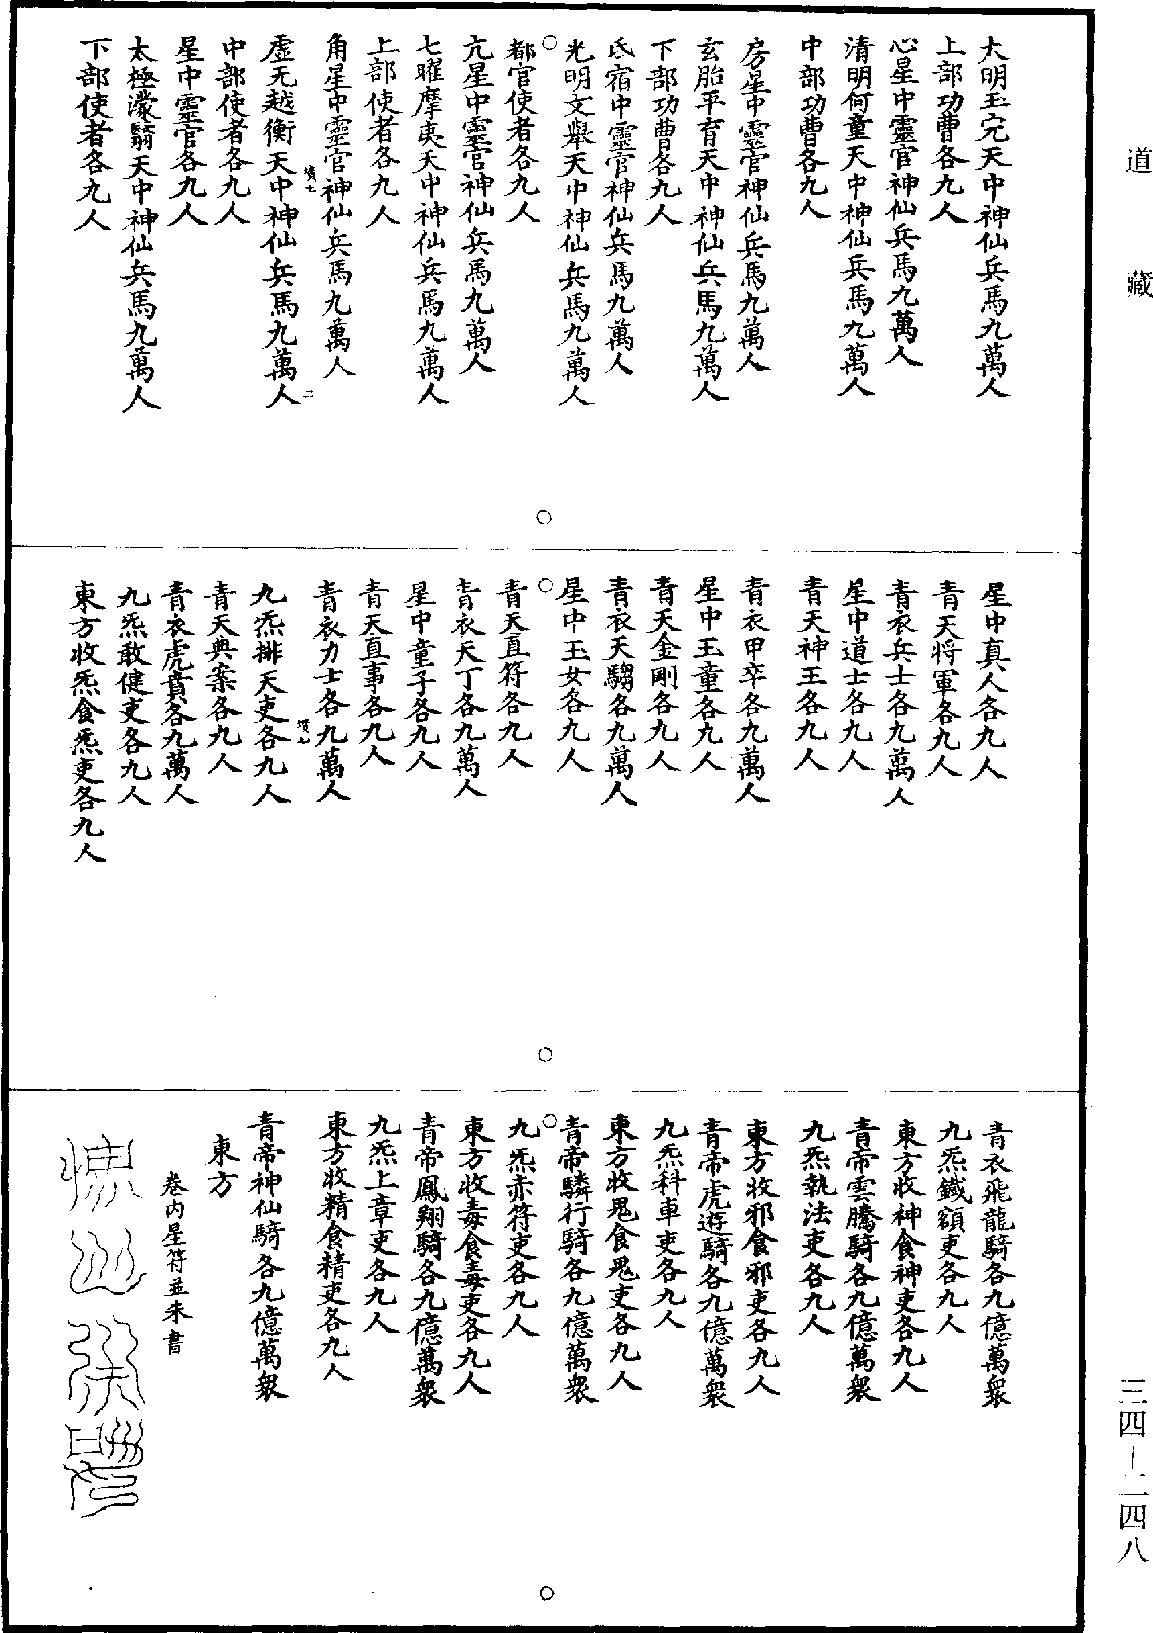 道藏
大明玉完天中神仙兵馬九萬人
上部功曹各九人
心星中靈官神仙兵馬九萬人
清明何童天中神仙兵馬九萬人
中部功曹各九人
房星中靈官神仙兵馬九萬人
玄胎平育天中神仙兵馬九萬人
下部功曹各九人
氐宿中靈官神仙兵馬九萬人
光明文舉天中神仙兵馬九萬人
都官使者各九人
亢星中靈官神仙兵馬九萬人
七曜摩夷天中神仙兵馬九萬人
上部使者各九人
角星中靈官神仙兵馬九萬人
虛无越衡天中神仙兵馬九萬人
中部使者各九人
星中靈官各九人
太極濛翳天中神仙兵馬九萬人
下部使者各九人
星中真人各九人
青天将軍各九人
青衣兵士各九萬人
星中道士各九人
青天神王各九人
青衣甲卒各九萬人
星中玉童各九人
青天金剛各九人
青衣天騶各九萬人
星中玉女各九人
青天直符各九人
青衣天丁各九萬人
星中童子各九人
青天直事各九人
青衣力士各九萬人
九炁排天吏各九人
青天典案各九人
青衣虎賁各九萬人
九炁敢健吏各九人
東方收炁食炁吏各九人
青衣飛龍騎各九億萬衆
九炁鐵額吏各九人
東方收神食神吏各九人
青帝雲騰騎各九億萬衆
九炁執法吏各九人
東方收邪食邪吏各九人
青帝虎遊騎各九億萬衆
九炁科車吏各九人
東方收鬼食鬼吏各九人
青帝驎行騎各九億萬衆
九炁赤符吏各九人
東方收毒食毒吏各九人
青帝鳳翔騎各九億萬衆
九炁上章吏各九人
東方收精食精吏各九人
青帝神仙騎各九億萬衆
東方
卷内星符並朱書
三四—二四八